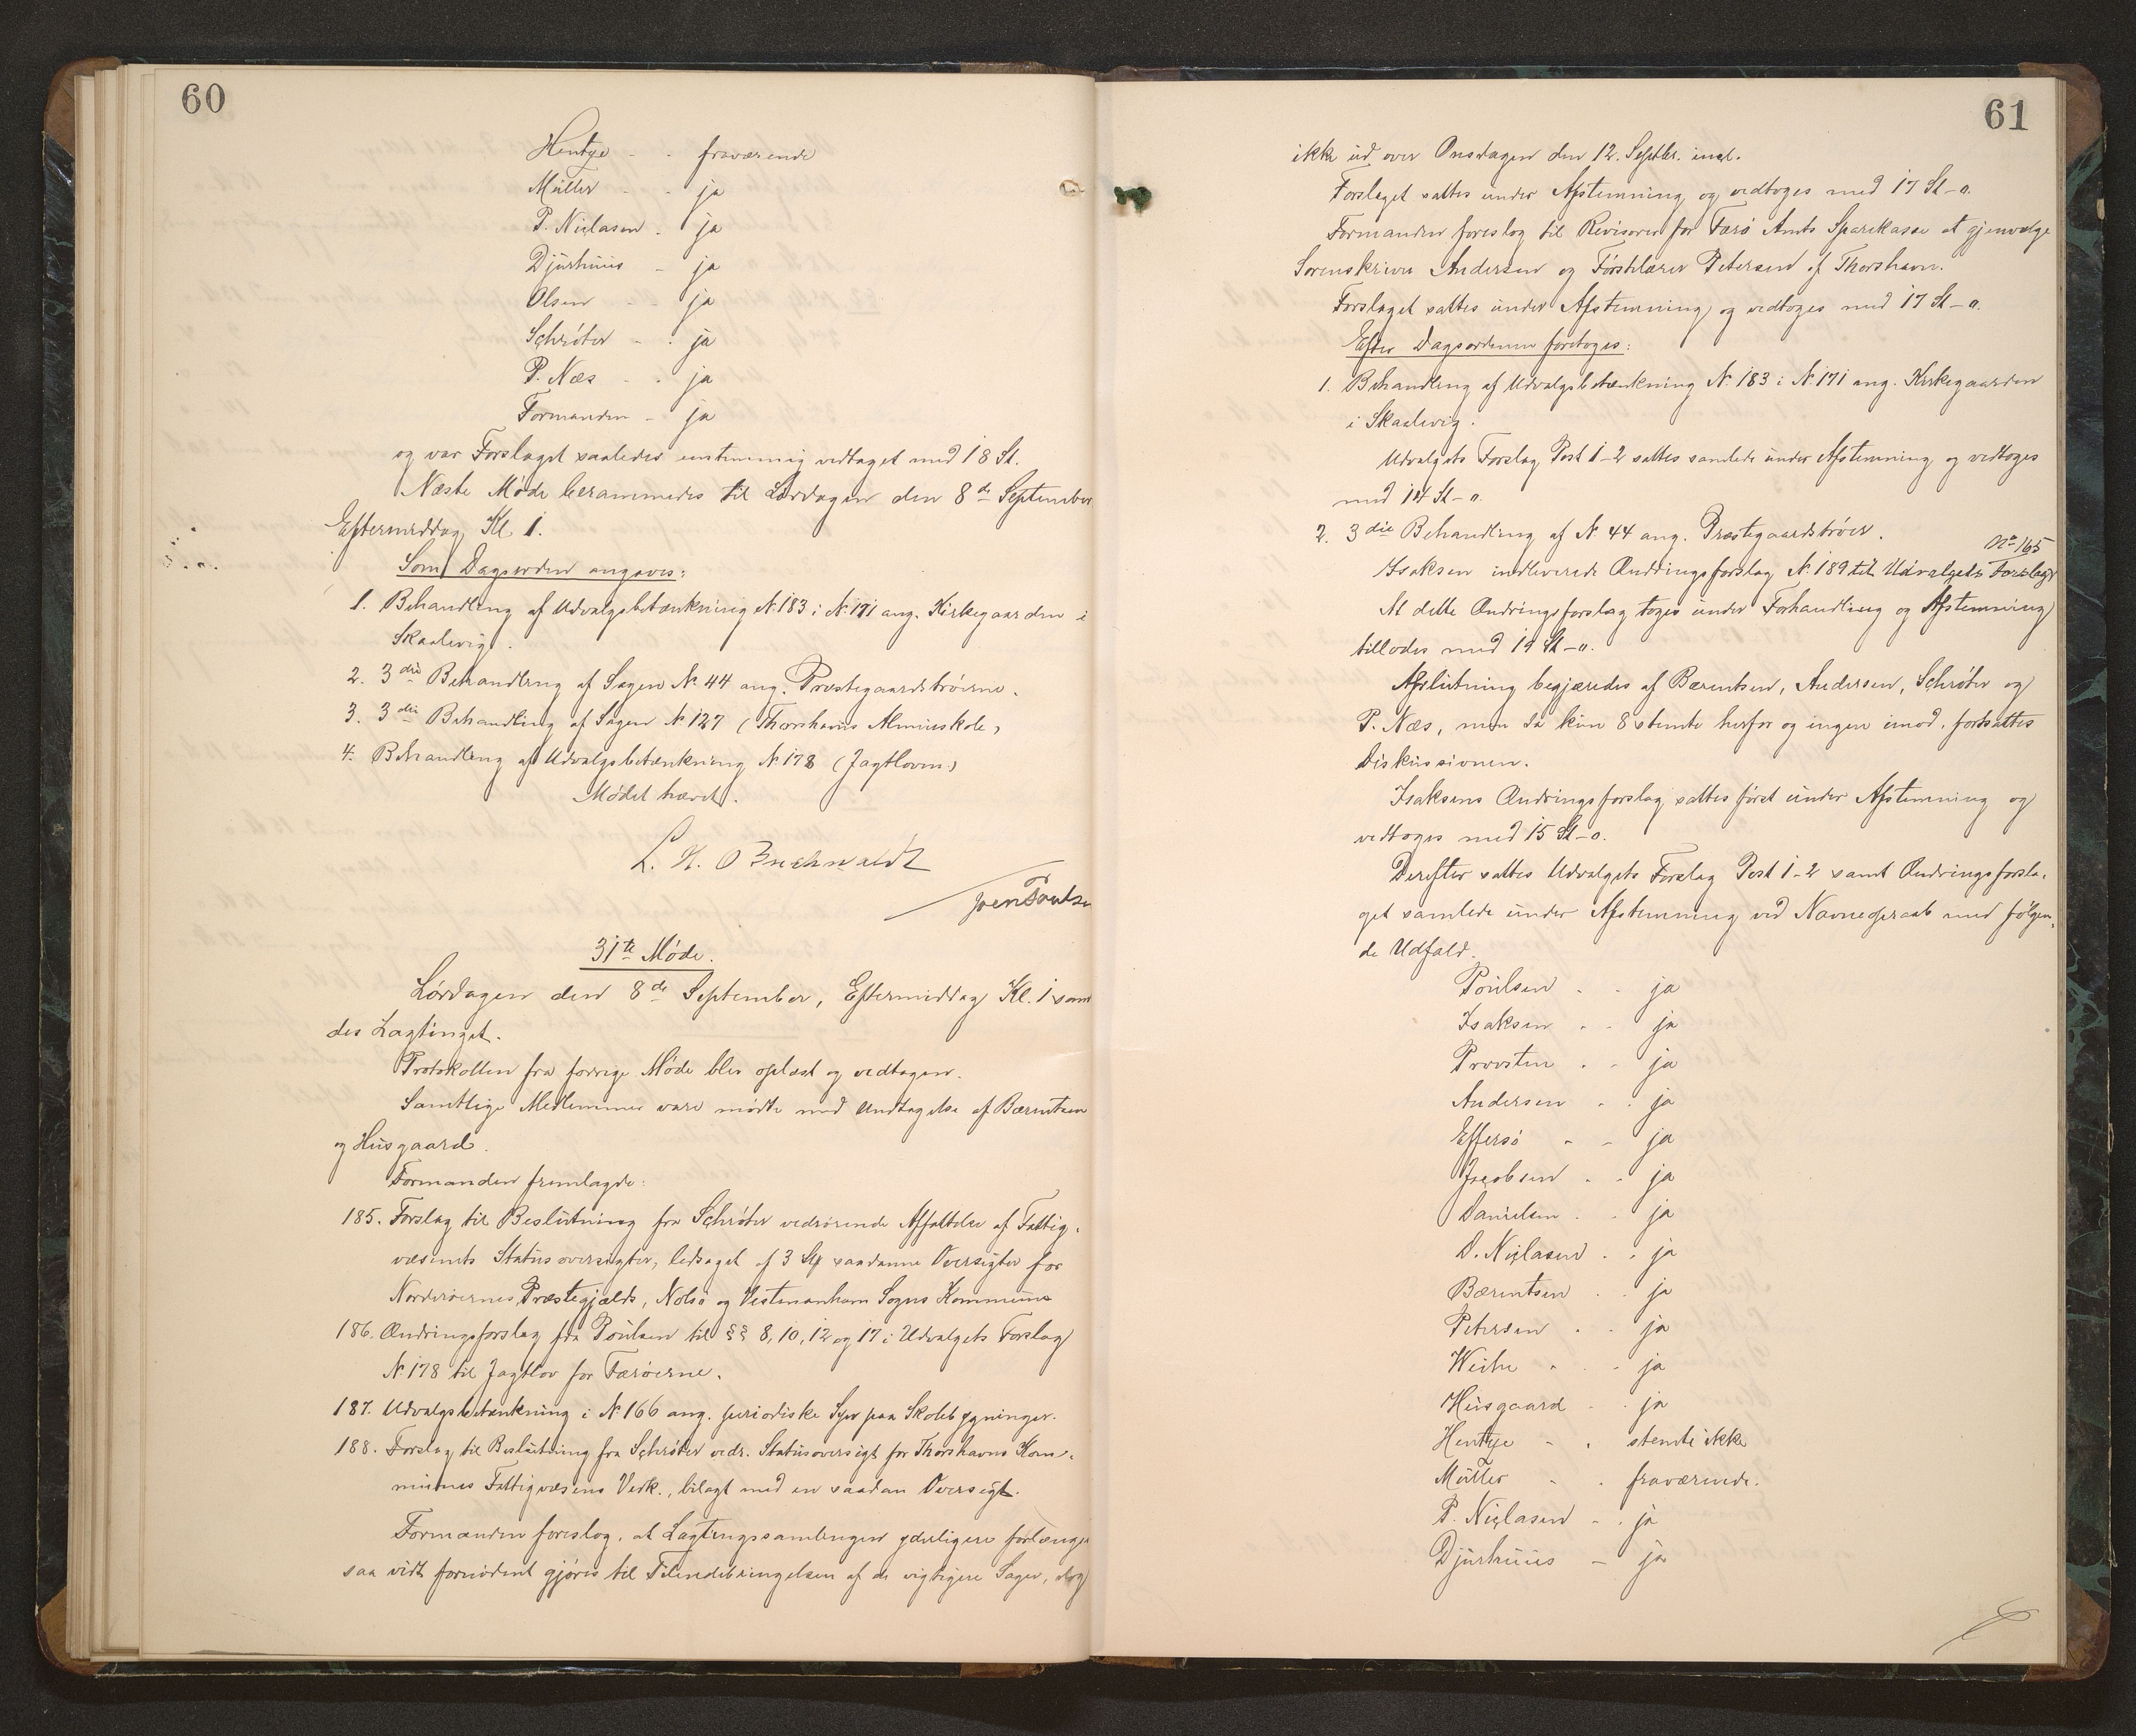 60
Hentze - - fraværende
Müller - - ja
P. Niclasen - ja
Djurhuus - ja
Olsen - - ja
Schrøter - - ja
P. Næs - - ja
Formanden - ja
og var Forslaget saaledes enstemmig vedtaget med 18 St.
Næste Møde berammedes til Lørdagen den 8de September
Eftermiddag Kl. 1.
Som Dagsorden angaves:
1. Behandling af Udvalgsbetænkning № 183 i № 171 ang. Kirkegaarden i
Skaalevig.
2. 3die Behandling af Sagen № 44 ang. Præstegaardstrøerne.
3. 3die Behandling af Sagen № 127 (Thorshavns Almueskole)
4. Behandling af Udvalgsbetænkning № 178 (Jagtloven.)
Mødet hævet.
L. H. Buchwaldt
Joen Poulsen
31te Møde.
Lørdagen den 8de September, Eftermiddag Kl. 1 sam
des Lagtinget.
Protokollen fra forrige Møde blev oplæst og vedtagen.
Samtlige Medlemmer vare mødte med Undtagelse af Bærentsen
og Husgaard.
Formanden fremlagde:
185. Forslag til Beslutning fra Schrøter vedrørende Affattelse af Fattig-
væsenets Statusoversigter, ledsaget af 3 Stk saadanne Oversigter for
Norderøernes Præstegjælds, Nolsø og Vestmanhavn Sogns Kommune
186. Ændringsforslag fra Poulsen til §§ 8, 10, 12 og 17 i Udvalgets Forslag
№ 178 til Jagtlov for Færøerne.
187. Udvalgsbetænkning i № 166 ang. periodiske Syn paa Skolebygninger.
188. Forslag til Beslutning fra Schrøter vedr. Statusoversigt for Thorshavns Kom-
munes Fattigvæsens Vedk., bilagt med en saadan Oversigt.
Formanden foreslog, at Lagtingssamlingen yderligere forlænges
saa vidt fornødent gjøres til Tilendebringelsen af de vigtigere Sager, dog
61
ikke ud over Onsdagen den 12. Septbr. incl.
Forslaget sattes under Afstemning og vedtoges med 17 St - 0.
Formanden foreslog til Revisorer for Færø Amts Sparekasse at gjenvælge
Sorenskriver Andersen og Førstelærer Petersen af Thorshavn.
Forslaget sattes under Afstemning og vedtoges med 17 St - 0.
Efter Dagsordenen foretoges:
1. Behandling af Udvalgsbetænkning № 183 i № 171 ang. Kirkegaarden
i Skaalevig.
Udvalgets Forslag Post 1-2 sattes samlede under Afstemning og vedtoges
med 14 St - 0.
2. 3die Behandling af № 44 ang. Præstegaardstrøer.
№ 165
Isaksen indleverede Ændringsforslag № 189 til Udvalgets Forslag
At dette Ændringsforslag toges under Forhandling og Afstemning
tillodes med 19 St - 0.
Afslutning begjæredes af Bærentsen, Andersen, Schrøter og
P. Næs, men da kun 8 stemte herfor og ingen imod, fortsattes
Diskussionen.
Isaksens Ændringsforslag sattes først under Afstemning og
vedtoges med 15 St - 0.
Derefter sattes Udvalgets Forslag Post 1-2 samt Ændringsforsla-
get samlede under Afstemning ved Navneopraab med følgen-
de Udfald.
Poulsen - - ja
Isaksen - - ja
Provsten - - ja
Andersen - - ja
Effersø - - ja
Jacobsen - - ja
Danielsen - - ja
D. Niclasen - - ja
Bærentsen - - ja
Petersen - - ja
Weihe - - ja
Husgaard - - ja
Hentze - - stemte ikke
Müller - - fraværende.
P. Niclasen - - ja
Djurhuus - ja